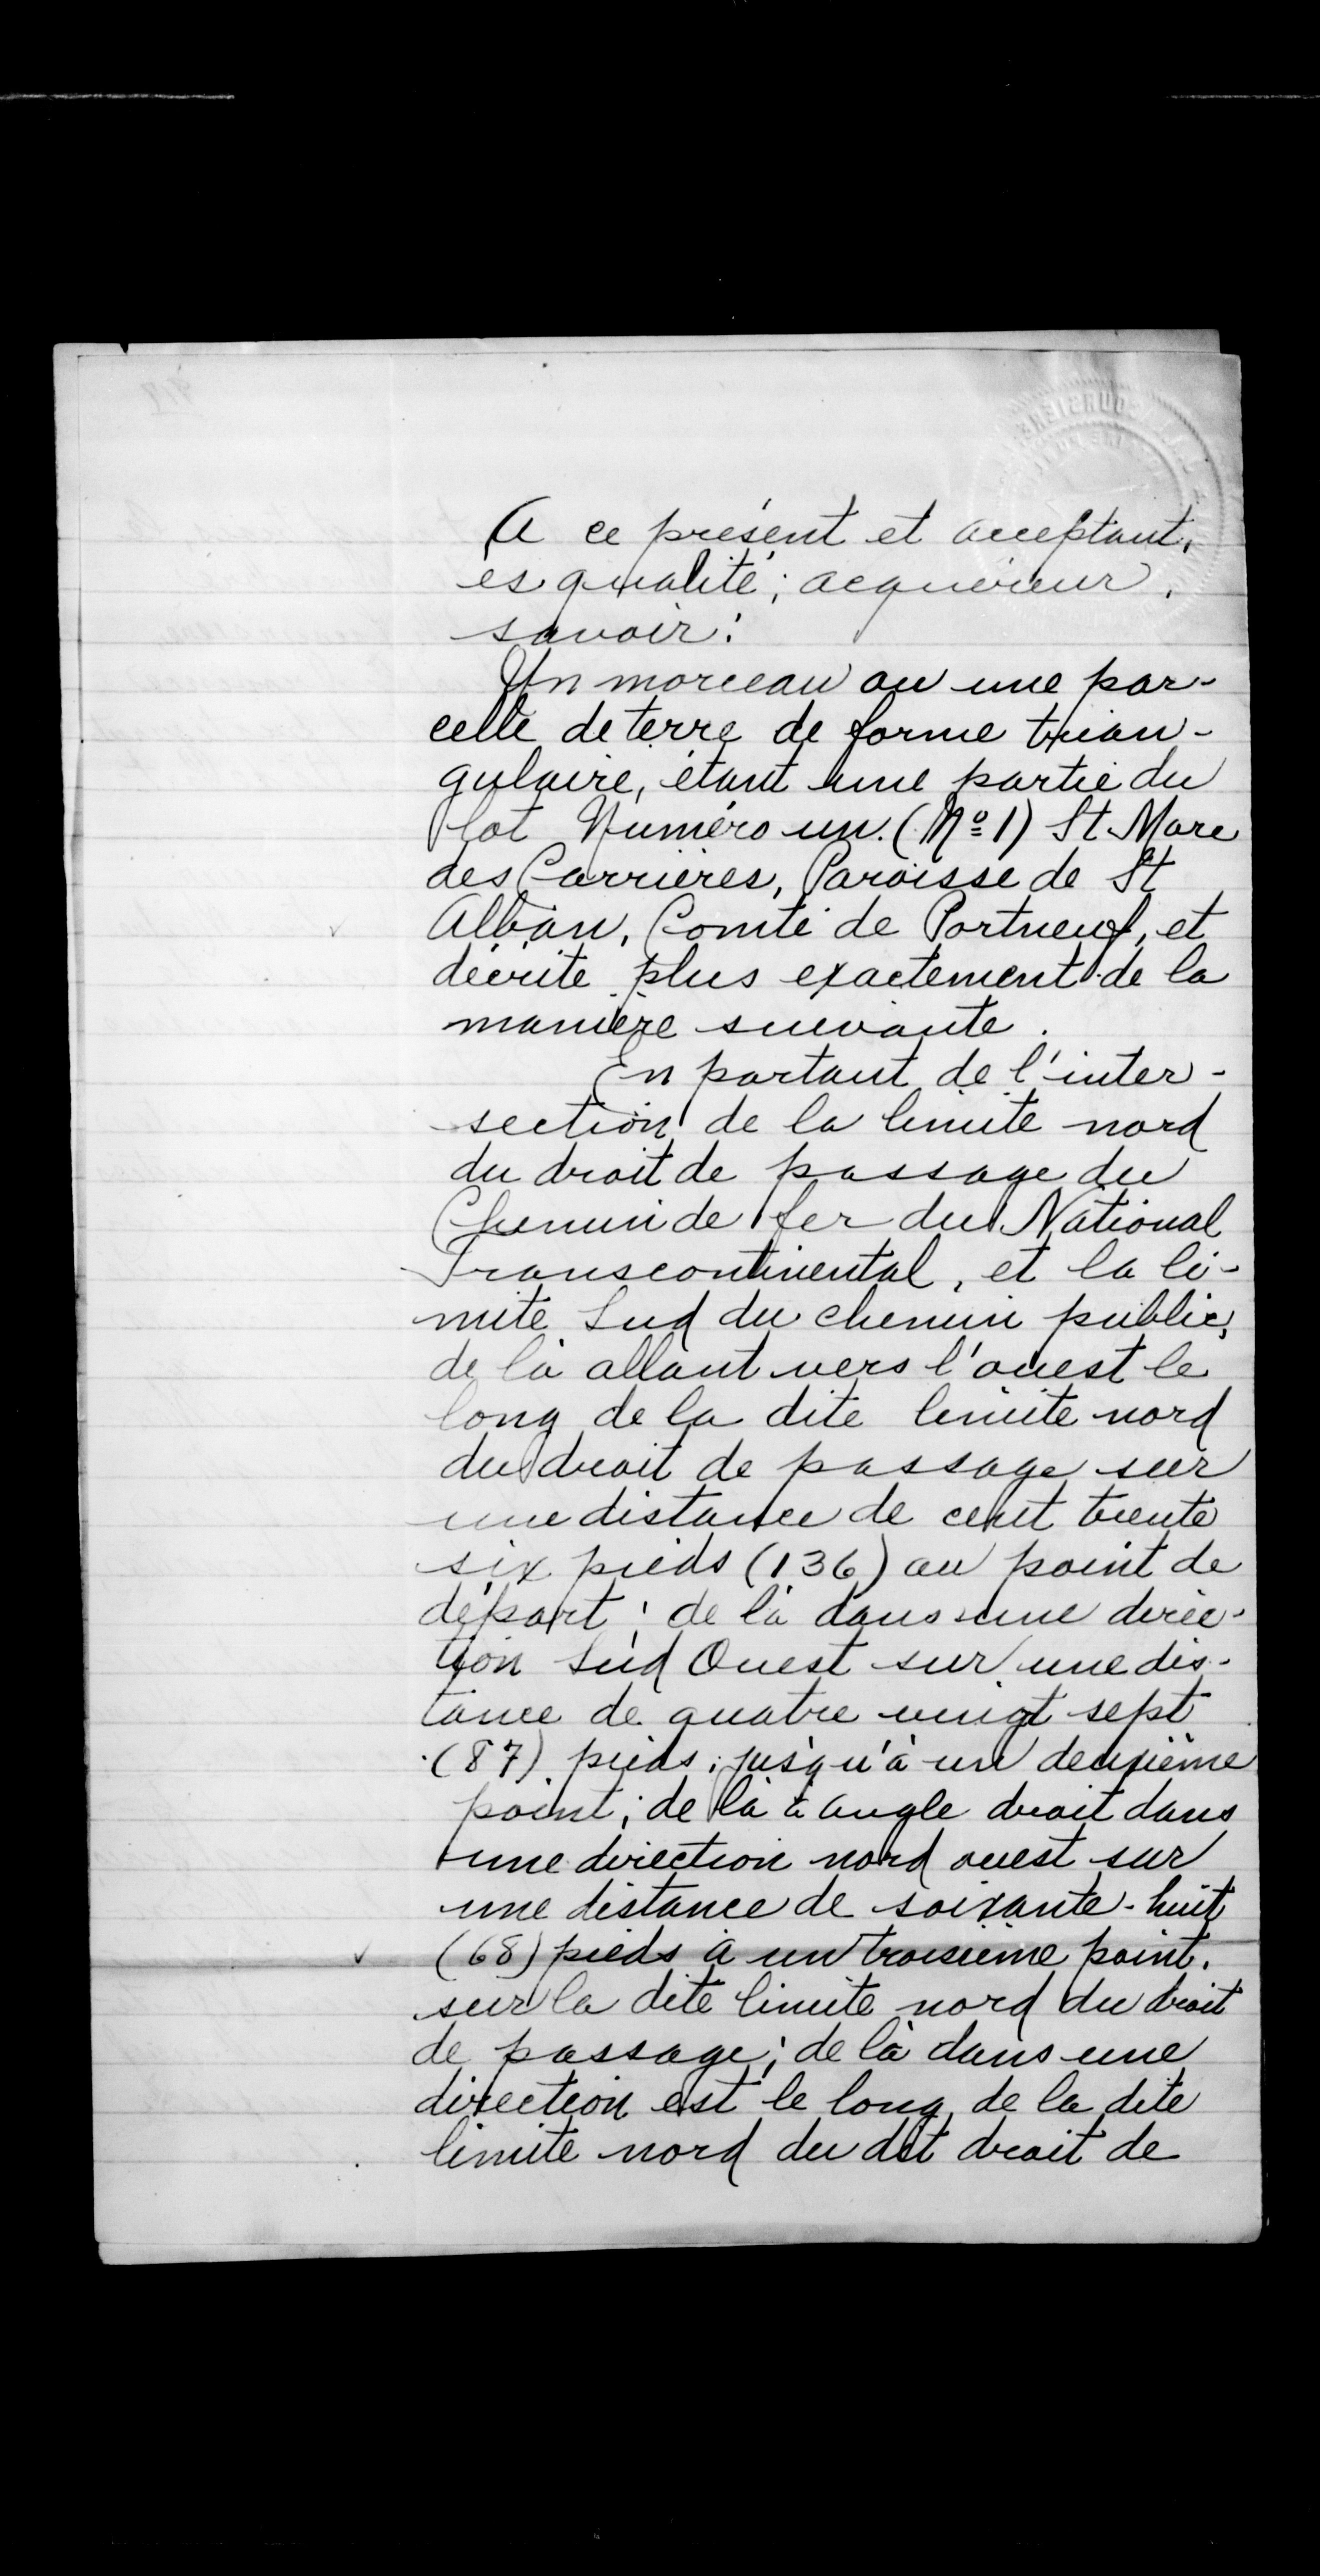 A ce présent et acceptant,
es qualité; acquéreur,
savoir:
Un morceau ou une par-
celle de terre de forme trian-
gulaire, étant une partie du
lot Numéro un. (No 1) St Marc
des Carrières, Paroisse de St
Alban, Comté de Portneuf, et
décrite plus exactement de la
manière suivante.
En partant de l'inter-
section de la limite nord
du droit de passage du
Chemin de fer du National
Transcontinental, et la li-
mite Sud du chemin public,
de là allant vers l'ouest le
long de la dite limite nord
du droit de passage sur
une distance de cent trente
six pieds (136) au point de
départ; de là dans une direc-
tion Sud Ouest sur une dis-
tance de quatre vingt sept
(87) pieds; jusqu'à un deuxième
point; de là à angle droit dans
une direction nord ouest sur
une distance de soixante-huit
(68) pieds à un troisième point.
sur la dite limite nord du droit
de passage; de là dans une
direction est le long de la dite
limite nord du dit droit de